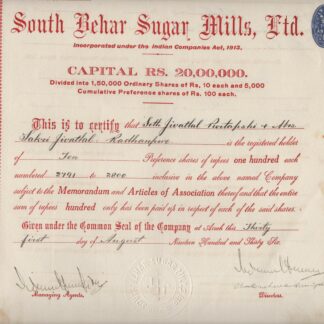 South Behar Sugar Mills, Ltd.
Incorporated under the Indian Companies Act, 1913.
CAPITAL RS. 20,00,000.
Divided into 1,50,000 Ordinary Shares of Rs, 10 each and 5,000
Cumulative Preference shares of Rs, 100 each.
This is to certify that Seth Jivatlal Purtapshi & Mrs
Jivatlal is the registered holders
of Ten Preference shares of rupees one hundred each
numbered 2791 to 2800 inclusive in the above named Company
subject to the Memorandum and Articles of Association thereof and that the entire
sum of rupees hundred only has been paid up in respect of each of the said shares.
Given under the Common Seal of the Company at Arrah this Thirty
first day of August Nineteen Hundred and Thirty Six.
Managing Agents.
Directors.